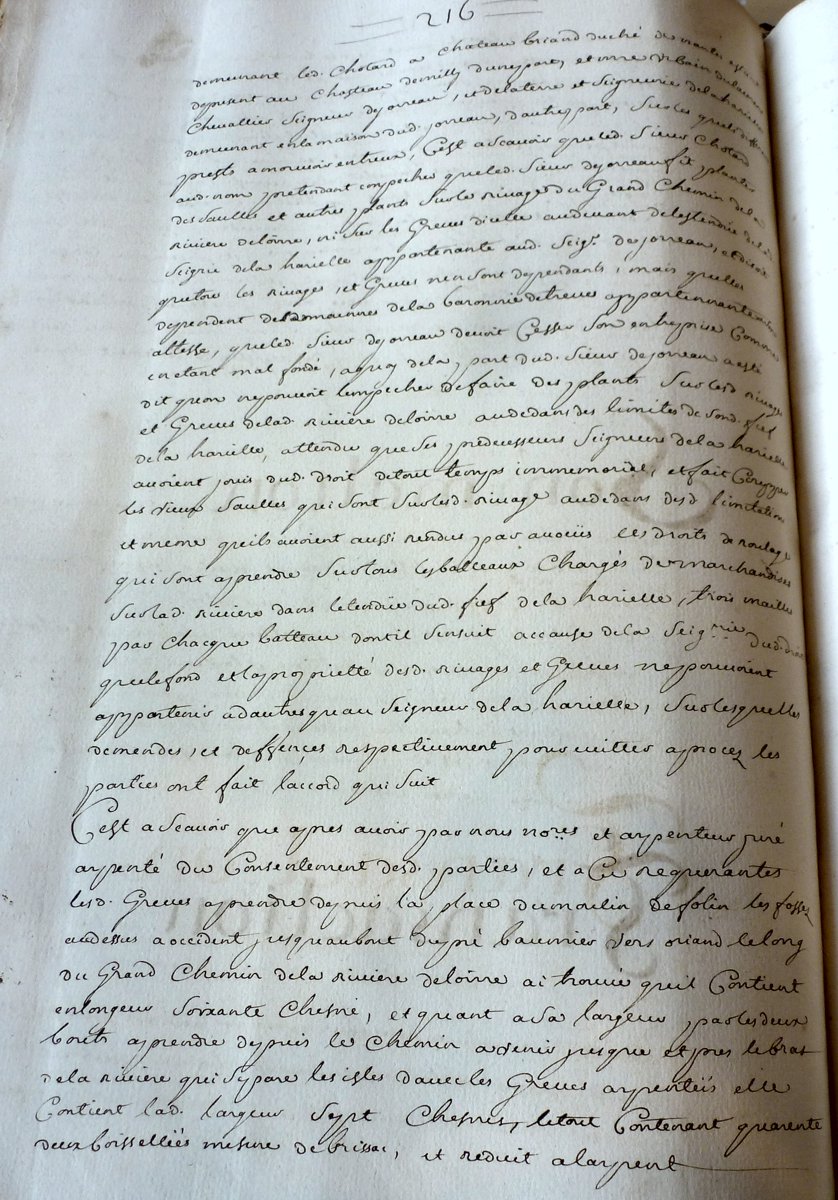 216
demeurant led. Chotard a chateau briand duché de nantes estant
depresent au Chasteau demilly d'unepart, et mre Urbain
Chevallier Seigneur dejorreau, et delaterre et Seigneurie delaharielle
demeurant enlamaison dud. jorreau, d'autrepart, Surles quels
prests amouvoir entreux, C'est ascavoir queled. Sieur Chotard
aud. nom pretendant empecher queled. Sieur dejorreau fit planter
des Saulles et autres plants Surle rivage du Grand Chemin dela
riviere deloire, ni Sur les Greves d'icelle audevant deletendüe delad.
Seigrie delaharielle appartenante aud. Seigr. dejorreau, et disoit
quetous les rivages, et Greves n'en sont dependants, mais quelles
dependent desdomainnes dela baronnie detreves appartennante
altesse, queled. Sieur dejorreau devoit Cesser Son entreprise Comme
enetant mal fondé, aquoy dela part dud. Sieur dejorreau aesté
dit quon nepouvoit lempecher defaire des plants Surlesd. rivages
et Greves delad. riviere deloire audedans des limites de sond. fief
dela harielle, attendu que Ses predecesseurs Seigneurs dela harielle
avoient jouis dud. droit detout temps immemorial, et fait Couper
les vieux Saulles qui sont Surlesd. rivage audedans desd. limitations
et meme quels avoient aussi rendus par aveüs les droits de roulage
qui sont aprendre Surtous lesbatteaux Chargés de marchandises
Surlad. riviere dans letendüe dud. fief dela harielle, trois maille
par Chacque batteau dontil Sensuit accause dela Seig.rie dud. droit
quelefond etlapropriété desd. rivages et Greves nepouvoient
appartenir adautres quau Seigneur dela harielle, Surlesquelles
demendes, et deffences respectivement pour eviter aprocez les
parties ont fait laccord qui suit
C'est ascavoir que apres avoir par nous no.res et arpenteur juré
arpenté du Consentement desd. parties, et a Ce requerantes
lesd. Greves aprendre depuis la place dumoulin defolin les fossez
audessus aoccident jusquaubout dupré baumier vers oriand lelong
du Grand Chemin dela riviere deloire ai trouvé quil Contient
enlongeur Soixante Chesne, et quant a Sa largeur parlesdeux
bouts aprendre depuis le Chemin avenir jusque et pres lebras
dela riviere qui separe lesisles davec les Greves arpentéës elle
Contient lad. largeur Sept Chesnes, letout Contenant quarente
deux boisselléés mesure de brissac, et reduit alarpent